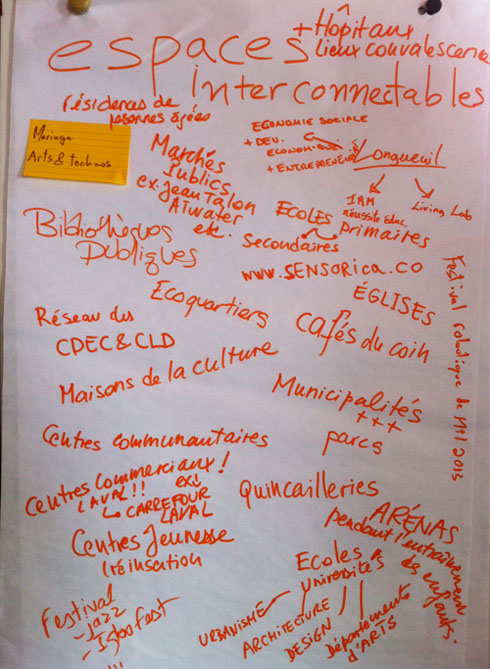 espaces
+ Hôpitaux
Lieux convalescence
interconnectables
résidences de
personnes âgées
Mariage
Arts & technos
ECONOMIE SOCIALE
+ DEV.
ECONOMIQUE
+ ENTREPRENEUR
Longueuil
IRM
réussite éduc.
Living Lab
Marchés
Publics
ex. Jean Talon
Atwater
etc.
ECOLES
Secondaires
primaires
Bibliothèques
Publiques
www.SENSORICA.CO
Ecoquartiers
ÉGLISES
Festival robotique de Mtl 2013
Réseau des
CDEC & CLD
cafés du coin
Maisons de la culture
Municipalités
+++
parcs
Centres communautaires
Centres commerciaux!
LAVAL!! ex:
Le CARREFOUR
LAVAL
Quincailleries
ARÉNAS
pendant l'entraînement
des enfants.
Centres Jeunesse
(réinsertion
Ecoles
Universités
URBANISME
ARCHITECTURE
DESIGN
Départements
d'ARTS
Festival
- jazz
- Igloofest
!!!